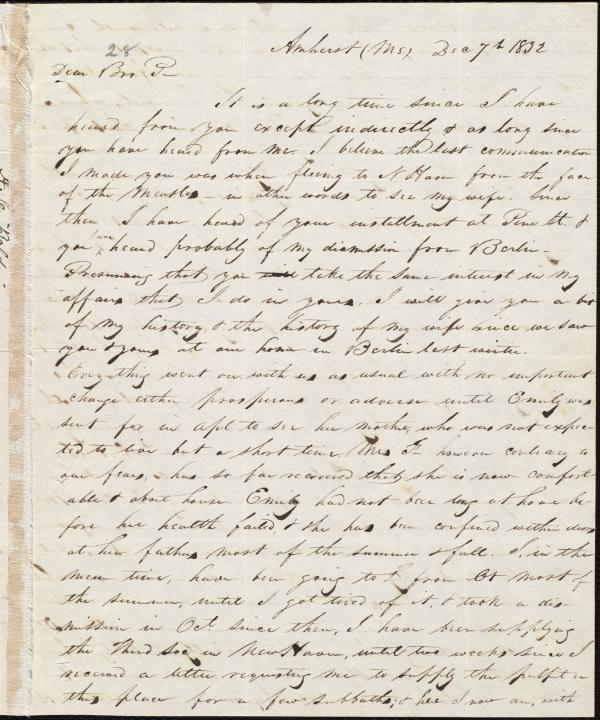 28
Amherst (Ms) Dec 7th 1832
Dear Bro P—
It is a long time since I have
heard from you except indirectly & as long since
you have heard from me. I believe the last communication
I made you was when fleeing to N Haven from the face
of the Measles — in other words to see my wife. Since
then I have heard of your installment at Pine St. &
you have heard probably of my dismission from Berlin —
Presuming that you will take the same interest in my
affairs that I do in yours, I will give you a bit
of my history & the history of my wife since we saw
you & yours at our home in Berlin last winter.
Everything went on with us as usual with no important
change either prosperous or adverse until Emily was
sent for in Apl to see her mother, who was not expec-
ted to live but a short time. Mrs F however contrary to
our fears, has so far recovered that she is now comfort-
able & about house. Emily had not been long at home be-
fore her health failed & she has been confined within doors
at her fathers most of the summer & fall. I, in the
mean time, have been going to & from Ct most of
the summer, until I got tired of it, & took a dis-
mission in Oct. since then, I have been supplying
the Third Soc in New Haven, until two weeks since I
received a letter requesting me to supply the pulpit in
this place for a few sabbaths; & here I now am, with